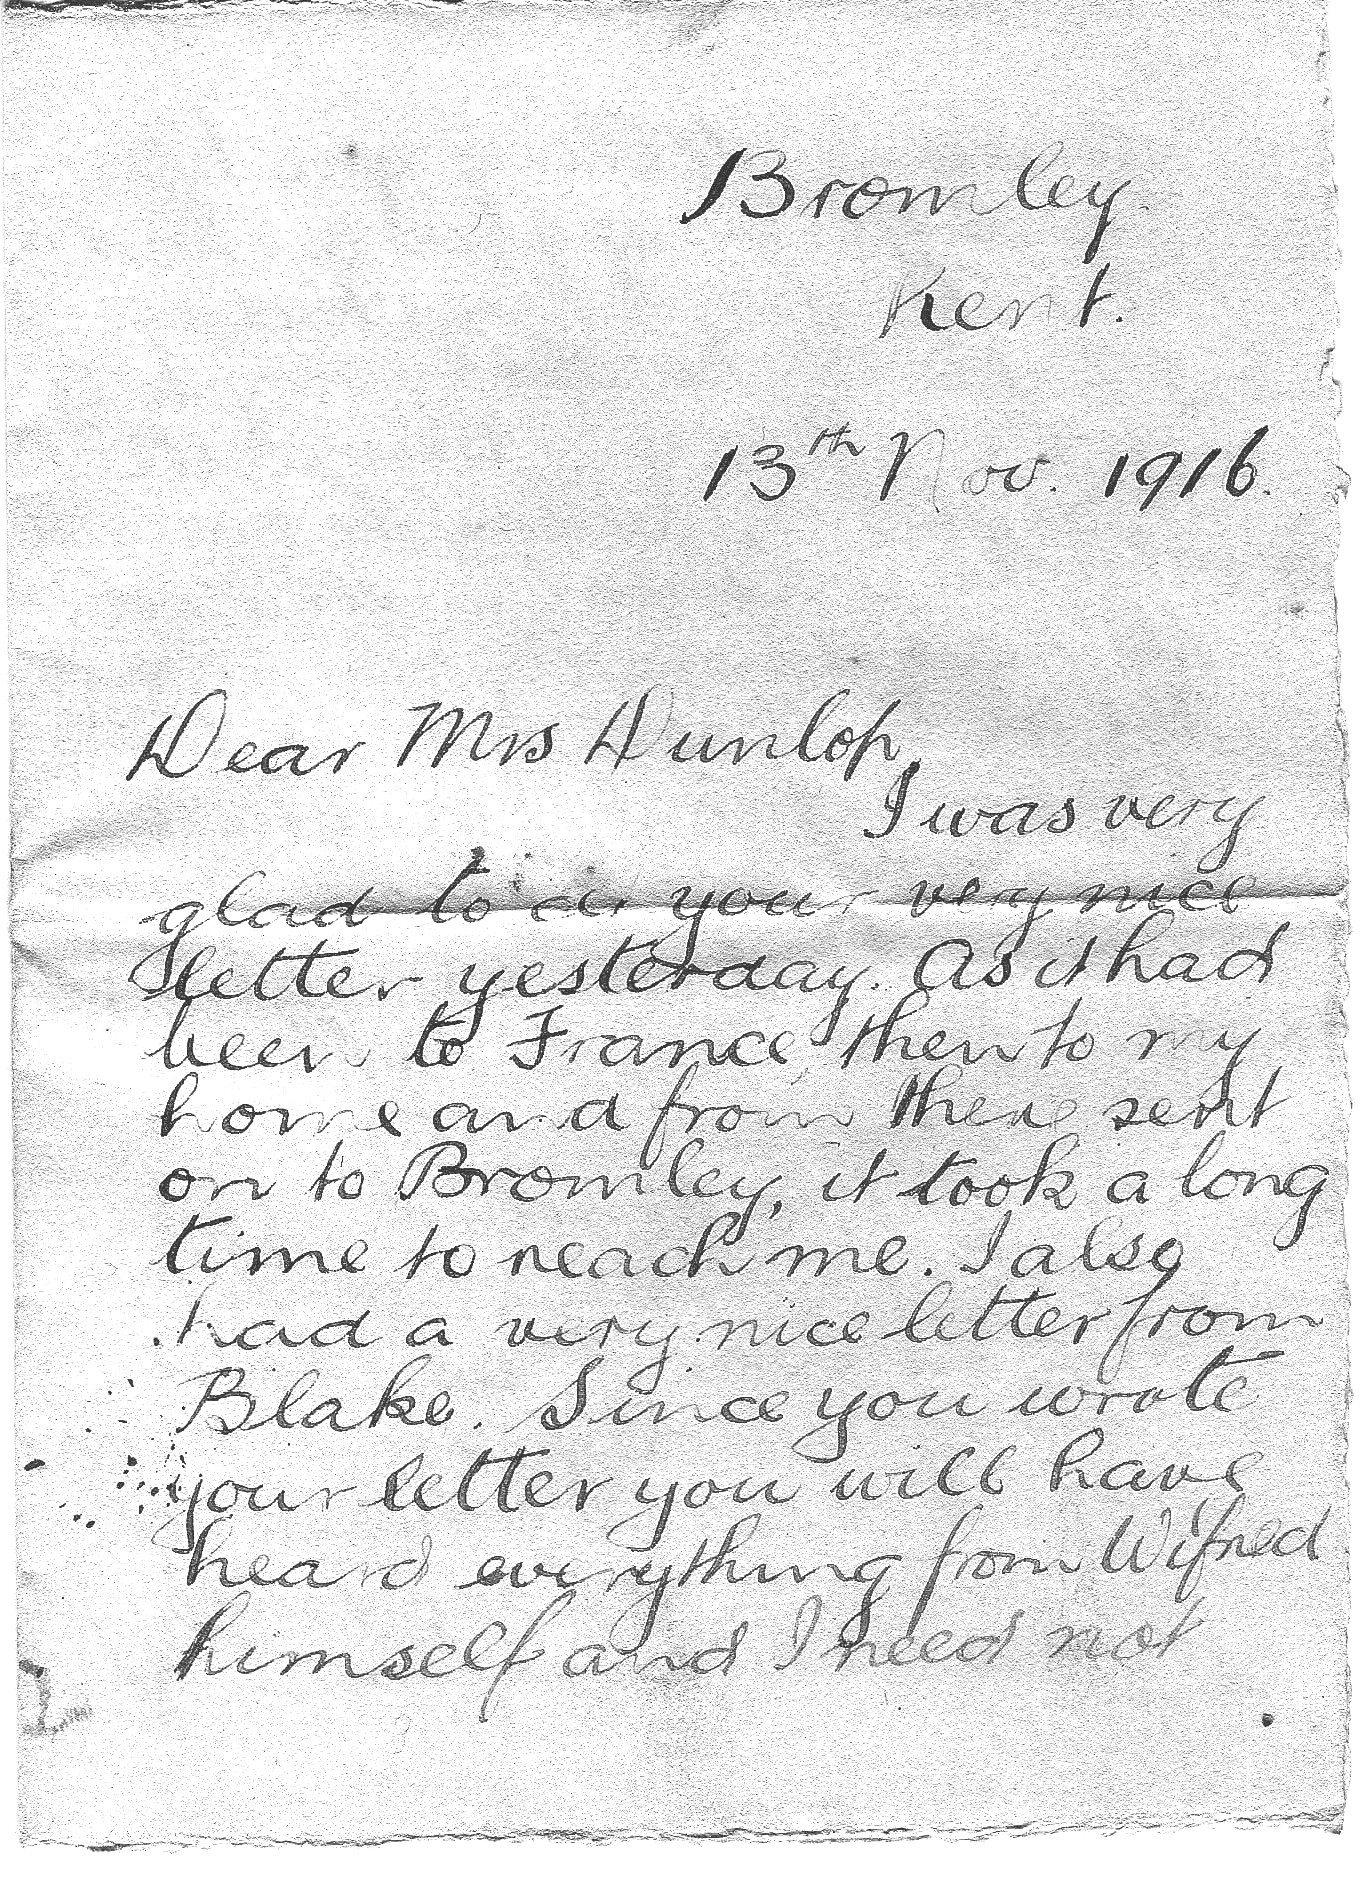 Bromley
Kent.
13th Nov. 1916.
Dear Mrs Dunlop,
I was very
glad to your very nice
letter yesterday. As it had
been to France then to my
home and from there sent
on to Bromley, it took a long
time to reach me. I also
had a very nice letter from
Blake. Since you wrote
your letter you will have
heard everything from Wifred
himself and I need not